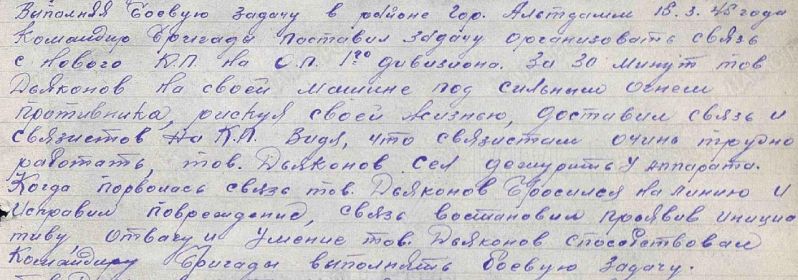 Выполняя боевую задачу в районе гор. Альтдамм 18.3.45 года
Командир бригады поставил задачу организовать связь
с нового К.П. на О.П. 1го дивизиона. За 30 минут тов
Дьяконов на своей машине под сильным огнем
противника, рискуя своей жизнью, доставил связь и
связистов на К.П. Видя, что связистам очинь трудно
работать, тов. Дьяконов сел дежурить у аппарата.
Когда порвалась связь тов. Дьяконов бросился на линию и
исправил повреждение, связь востановил проявив инициа
тиву отвагу и умение тов. Дьяконов способствовал
Командиру бригады выполнять боевую задачу.